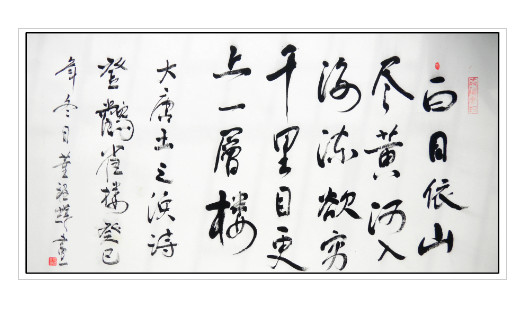 白日依山
尽黄河入
海流欲穷
千里目更
上一層楼
大唐王之涣诗
登鹳雀楼癸巳
年冬月董